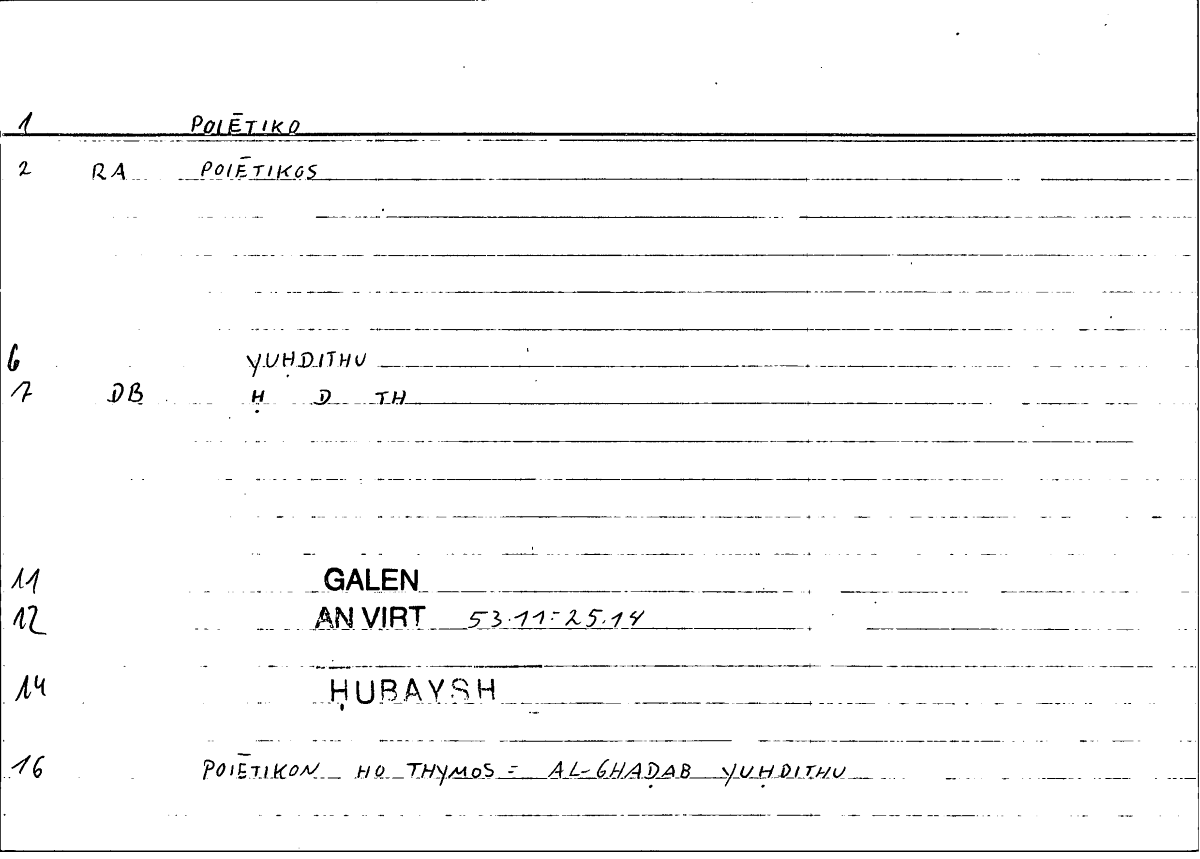 1 POIĒTIKO
2 RA POIĒTIKOS
6 YUḤDITHU
7 DB Ḥ D TH
11 GALEN
12 AN VIRT 53.11=25.14
14 ḤUBAYSH
16 POIĒTIKON HO THYMOS = AL-GHAḌAB YUḤDITHU